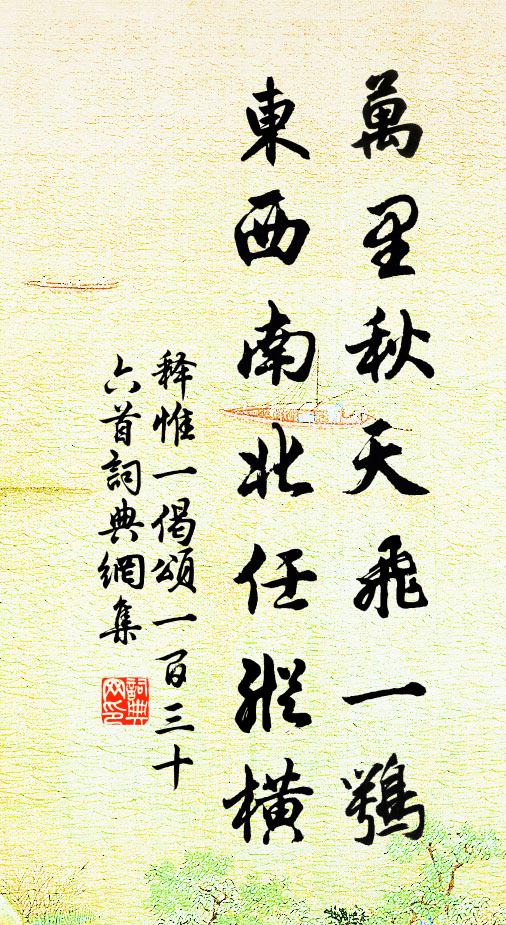 萬里秋天飛一鶚
東西南北任縱橫
释惟一偈頌一百三十
六首詞典網集
詞典网印